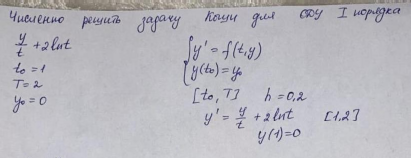 Численно решить задачу Коши для ОДУ I порядка
y/t + 2lnt
t₀ = 1
T = 2
y₀ = 0
{ y' = f(t,y)
y(t₀) = y₀
[t₀, T] h = 0,2
y' = y/t + 2lnt [1,2]
y(1) = 0